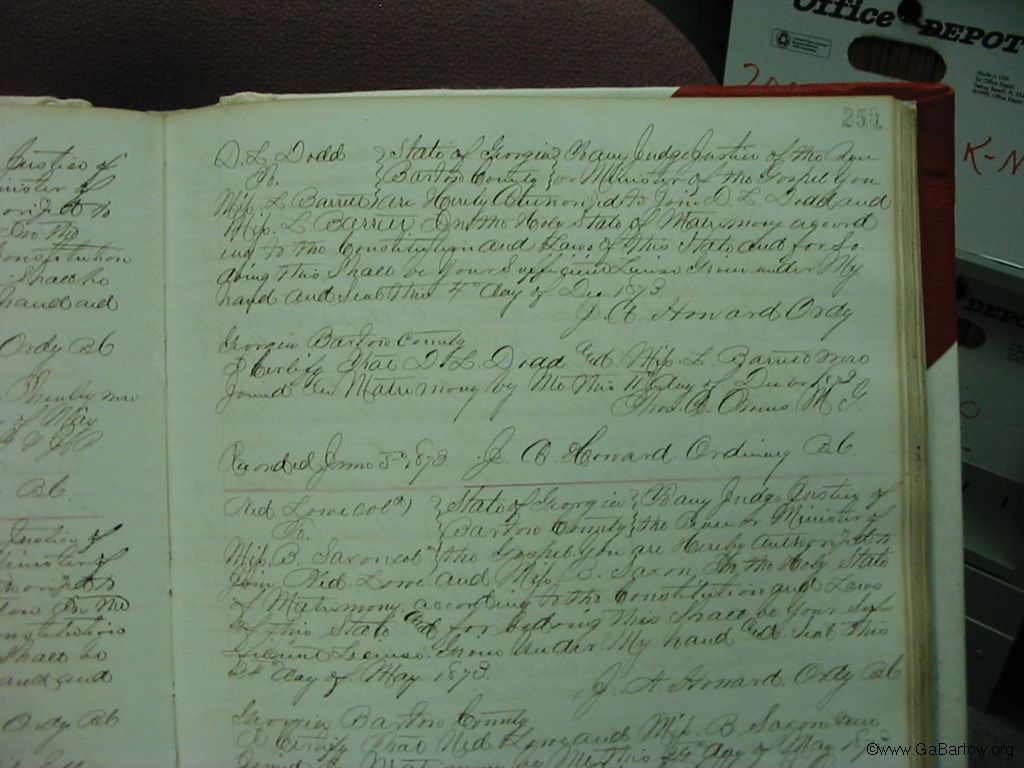 Office DEPOT
Made in USA
K-N
DEPOT
255
Justice of
inister of
orized to
In the
onstitution
Shall be
hand and
Ordy BC
of May
BC
Justice of
Minister of
horized to
In the
nstitution
Shall be
and and
Ordy BC
D. L. Dodd } State of Georgia } To any Judge Justice of the
To. } Bartow County } or Minister of the Gospel You
Miss. L Barrett are Hereby Authorized to Join D. L. Dodd and
Miss. L Barrett In the Holy State of Matrimony accord
ing to the Constitution and Laws of this State and for So
doing this Shall be Your Sufficient License Given under My
hand and Seal this 4th day of Dec 1873.
J. A Howard Ordy
Georgia Bartow County
I Certify that D. L. Dodd and Miss. L. were
Joined in Matrimony by Me this day of Dec 1873
M. G.
Recorded 1873 J. A. Howard Ordinary BC.
Ned Lowe col } State of Georgia } To any Judge Justice of
To. } Bartow County } the Peace or Minister of
Miss. B. Saxon col } the Gospel You are Hereby Authorized to
Join Ned Lowe and Miss. B. Saxon In the Holy State
of Matrimony according to the Constitution and Laws
of this State and for So doing this Shall be Your Suf-
ficient License Given under My hand and Seal this
day of May 1873.
J. A Howard Ordy BC
Georgia Bartow County
I Certify that Ned Lowe and Miss. B Saxon were
Joined in Matrimony by Me this day of May 1873
©www.GaBartow.org